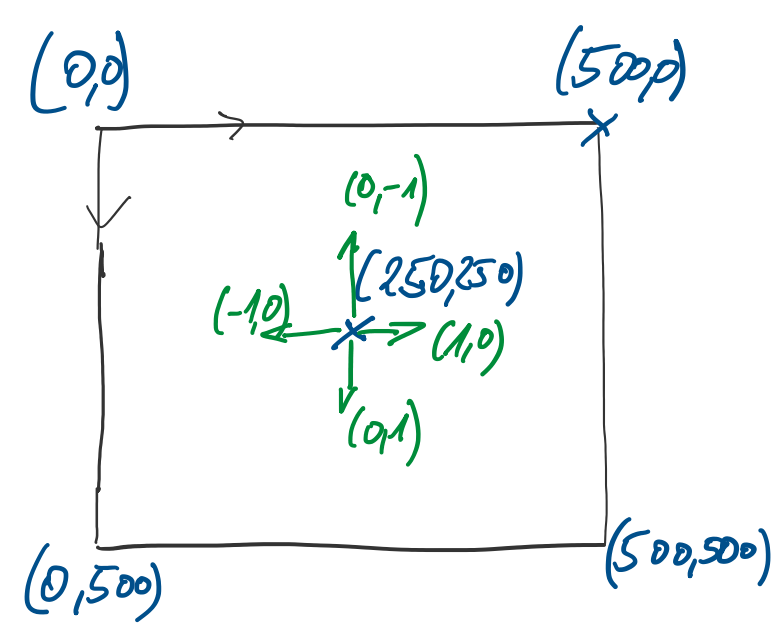 (0,0)
(500,0)
(0,-1)
(250,250)
(-1,0)
(1,0)
(0,1)
(0,500)
(500,500)